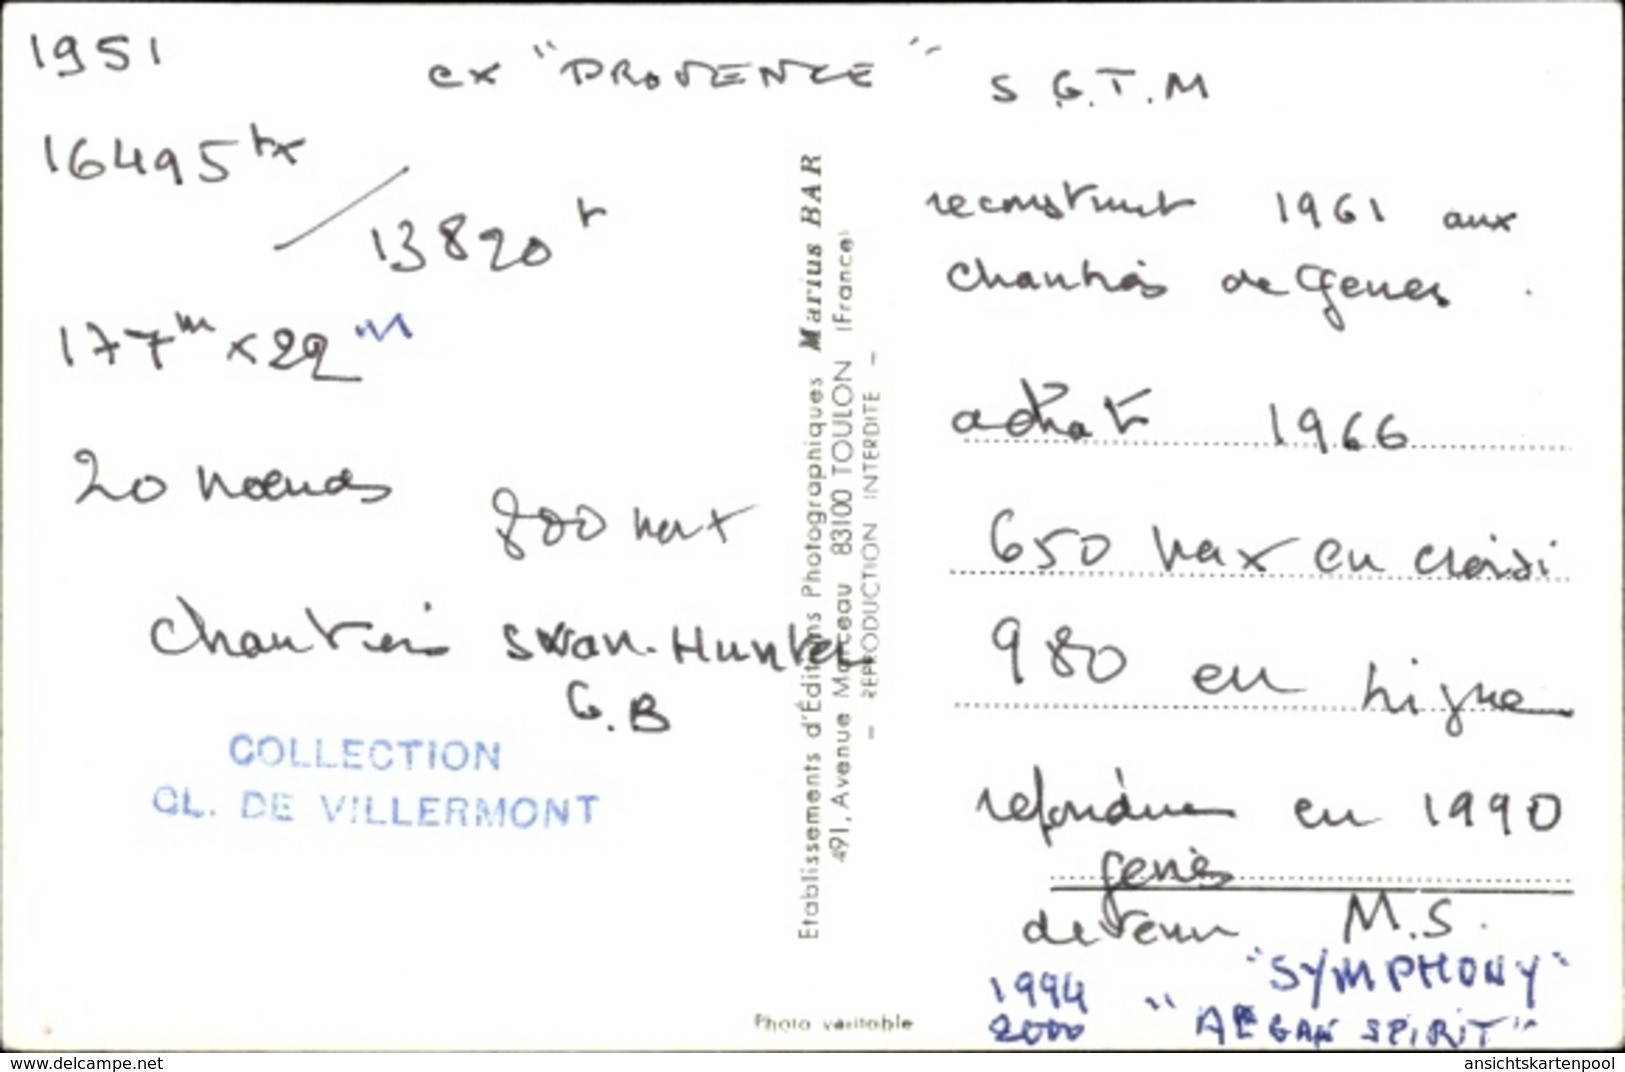 1951
ex "PROVENCE" S G.T.M
16495 tx
13820 t
177 m x 22 m
20 noeuds
800 pax
chantiers Swan-Hunter
G.B
COLLECTION
GL. DE VILLERMONT
Etablissements d'Éditions Photographiques Marius BAR
491, Avenue Marceau 83100 TOULON (France)
— REPRODUCTION INTERDITE —
Photo véritable
reconstruit 1961 aux
chantiers de Gênes
achat 1966
650 pax en croisi
980 en ligne
refondue en 1990
gênes
devenu M.S.
1994 "SYMPHONY"
2000 "AEGAN SPIRIT"
https://www.delcampe.net
ansichtskartenpool